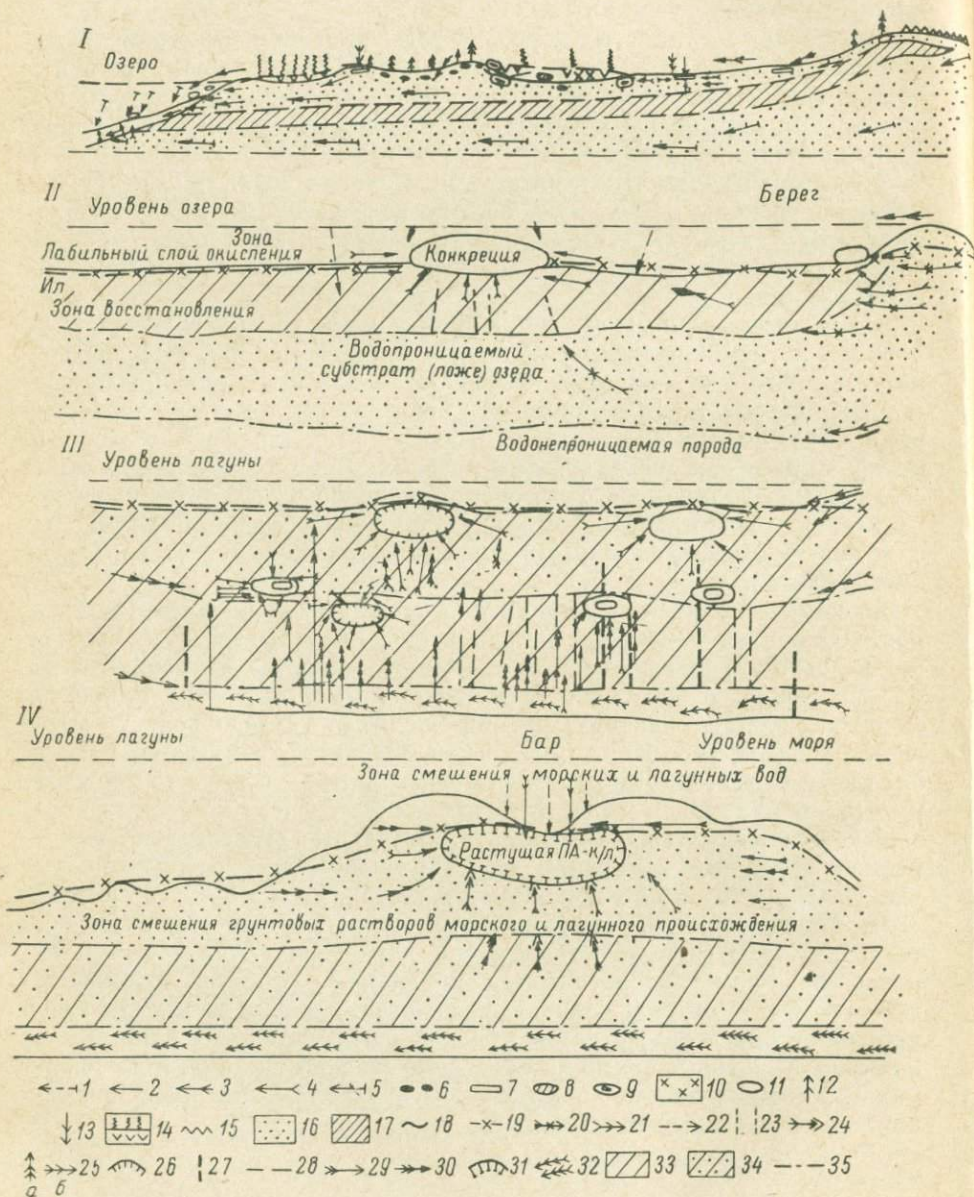 I
Озеро
II
Уровень озера
Берег
Зона
Лабильный слой окисления
Конкреция
Ил
Зона восстановления
Водопроницаемый
субстрат (ложе) озера
III
Водонепроницаемая порода
Уровень лагуны
IV
Уровень лагуны
Бар
Уровень моря
Зона смешения морских и лагунных вод
Растущая ПА-к/л
Зона смешения грунтовых растворов морского и лагунного происхождения
1 2 3 4 5 6 7 8 9 10 11 12
13 14 15 16 17 18 19 20 21 22 23 24
25 26 27 28 29 30 31 32 33 34 35
а б